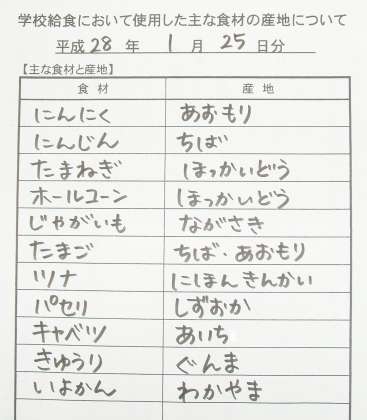 学校給食において使用した主な食材の産地について
平成 28 年 1 月 25 日分
【主な食材と産地】
食材 産地
にんにく あおもり
にんじん ちば
たまねぎ ほっかいどう
ホールコーン ほっかいどう
じゃがいも ながさき
たまご ちば・あおもり
ツナ にほんきんかい
パセリ しずおか
キャベツ あいち
きゅうり ぐんま
いよかん わかやま